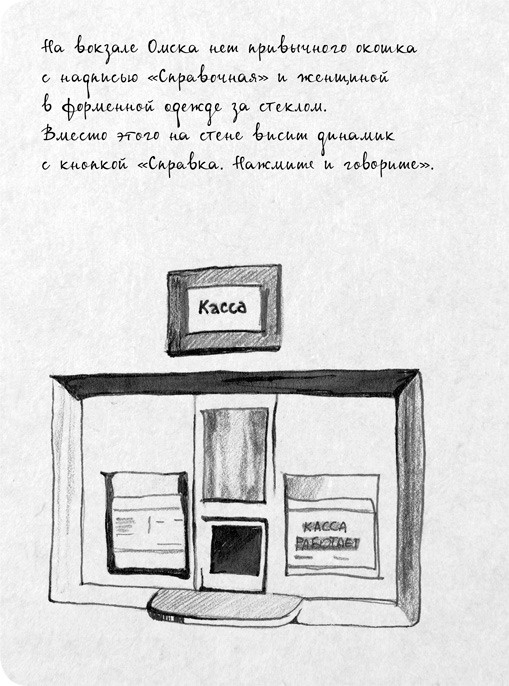 На вокзале Омска нет привычного окошка
с надписью «Справочная» и женщиной
в форменной одежде за стеклом.
Вместо этого на стене висит динамик
с кнопкой «Справка. Нажмите и говорите».
Касса
КАССА
РАБОТАЕТ